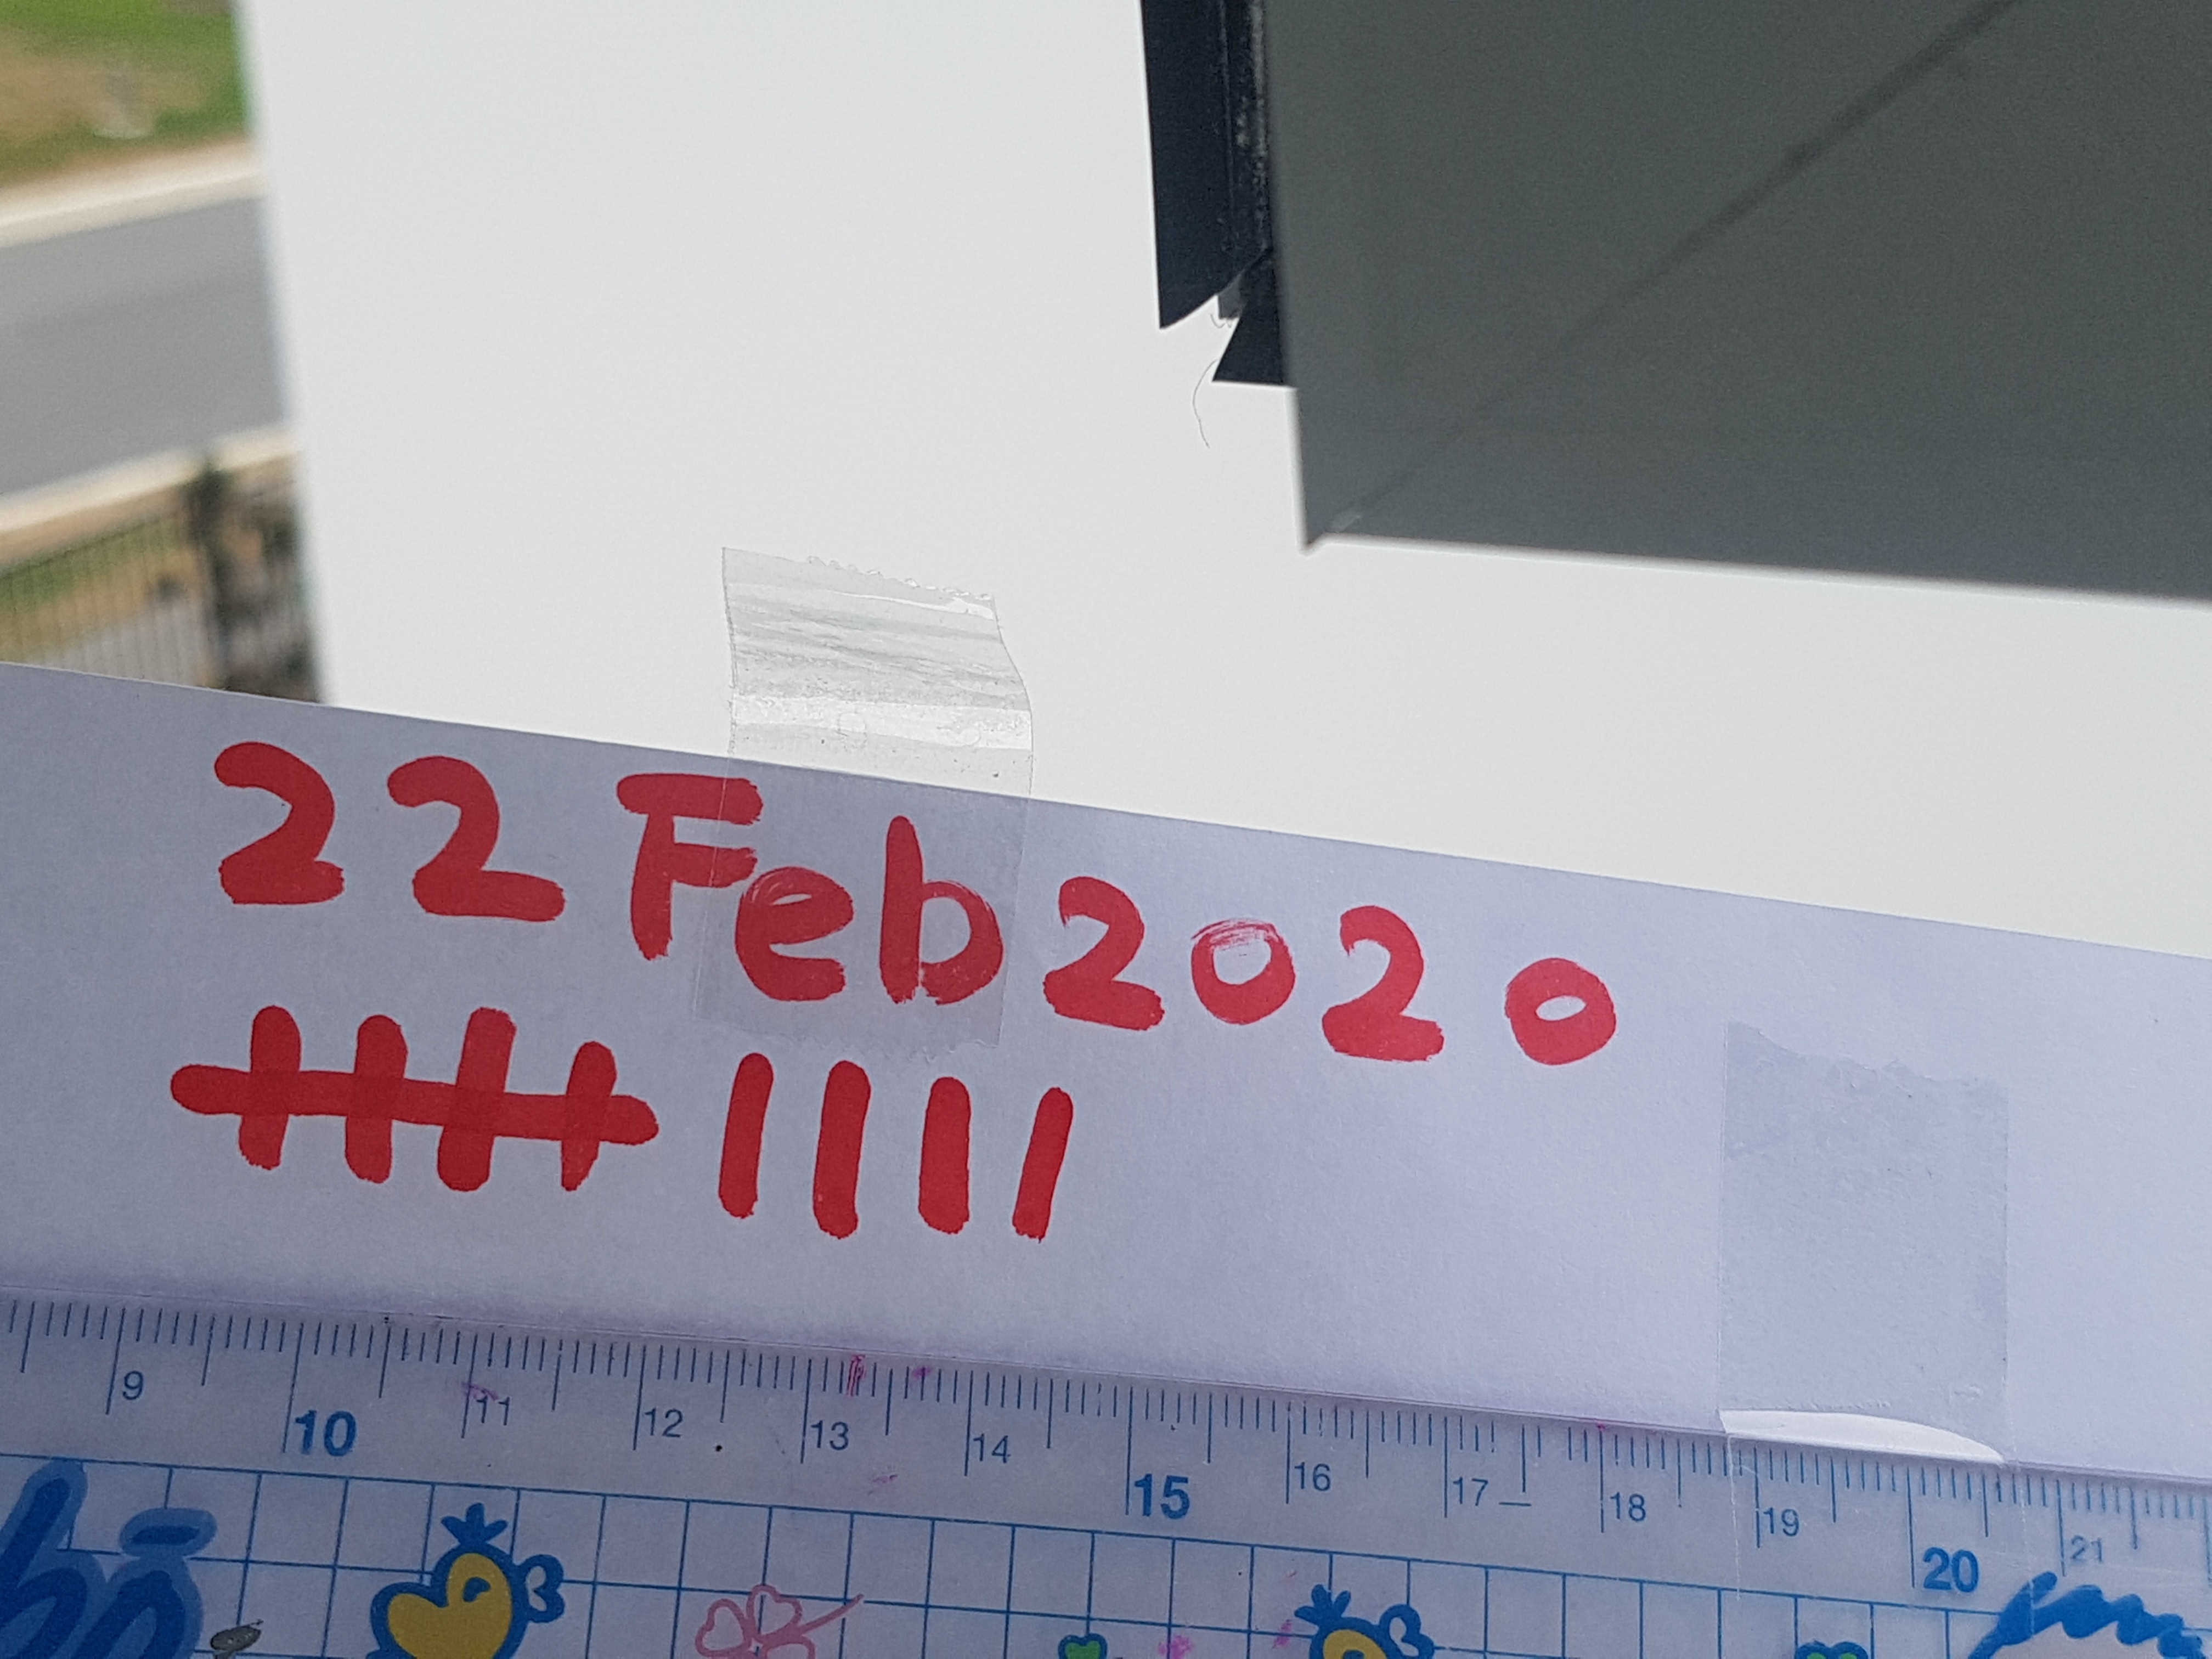 22 Feb 2020
9 10 11 12 13 14 15 16 17 18 19 20 21